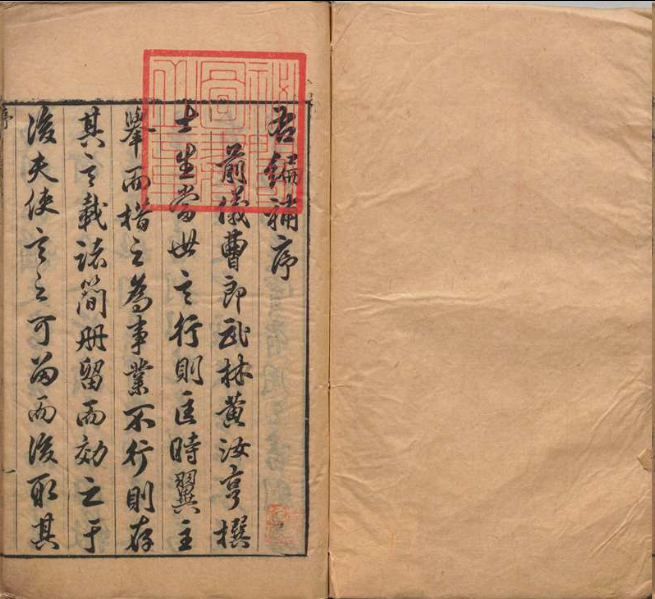 右編補序
前儀曹郎武林黃汝亨撰
士生當世言行則匡時翼主
舉而措之為事業不行則存
其言載諸簡册留而効之于
後夫使言之可留而後取其